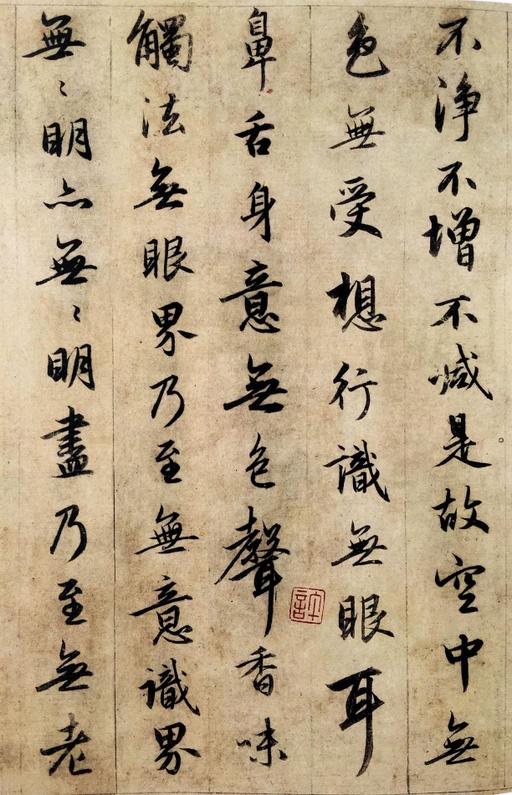 不淨不增不減是故空中無
色無受想行識無眼耳
鼻舌身意無色聲香味
觸法無眼界乃至無意識界
無〻明亦無〻明盡乃至無老
許